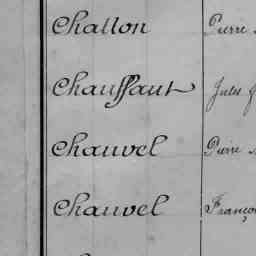 Challon Pierre
Chauffaut Jules
Chauvel Pierre
Chauvel Franço